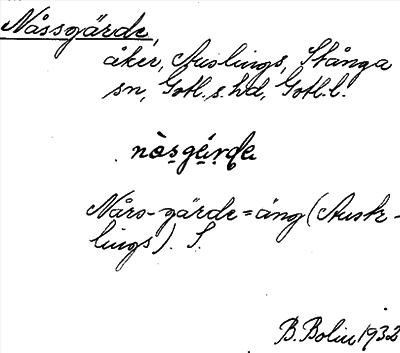 Nåssgärde,
åker, Auslings, Stånga
sn, Gotl. s. hd, Gotl. l.
nås̩gɛ́rde
Nårs-gärde = äng (Ausk-
lings). S.
B. Bolin 1932